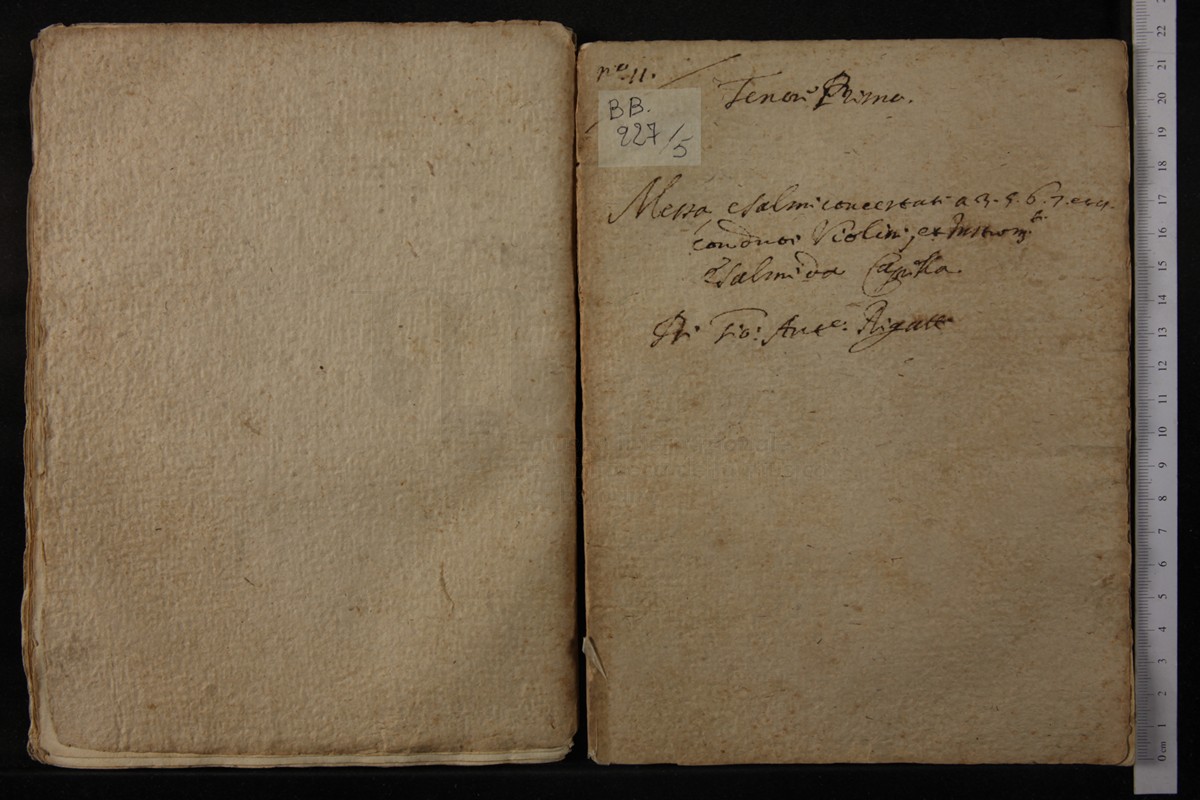 nº. 11.
Tenor Primo.
BB.
227/5
Messa, e Salmi concertati a 3. 5. 6. 7. et 8.
con duoi Violini, et Instromti.
e Salmi da Capella.
Di Gio: Anto: Rigatti
22
21
20
19
18
17
16
15
14
13
12
11
10
9
8
7
6
5
4
3
2
1
0 cm